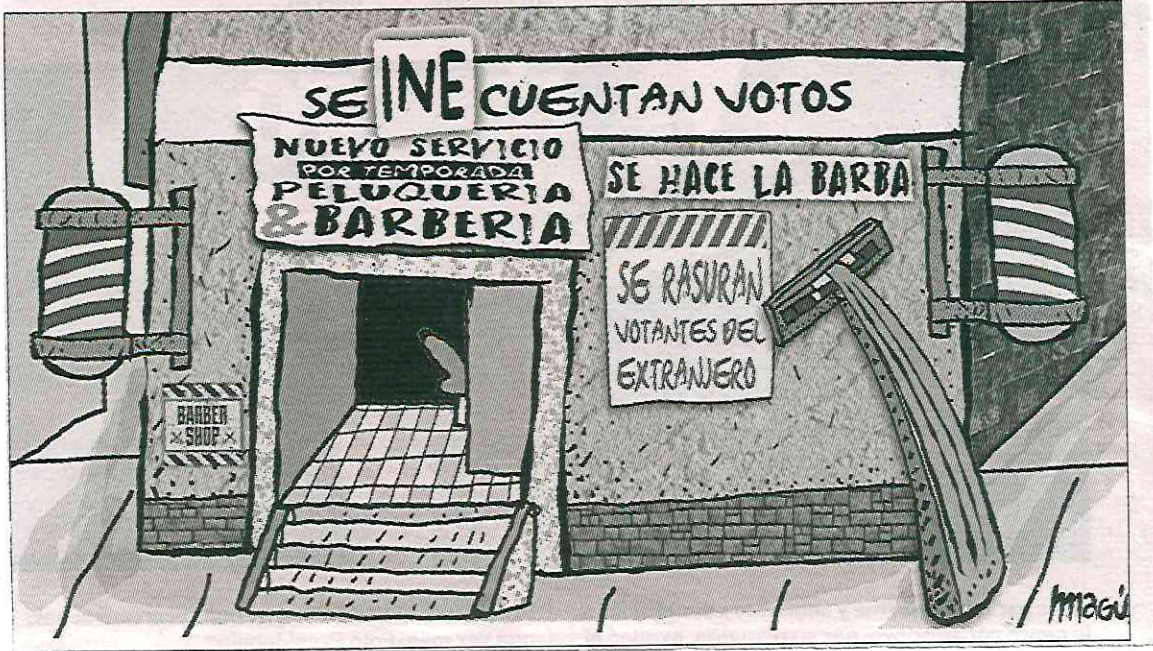 SE INE CUENTAN VOTOS
NUEVO SERVICIO
POR TEMPORADA
PELUQUERIA
& BARBERIA
SE HACE LA BARBA
SE RASURAN
VOTANTES DEL
EXTRANJERO
BARBER
SHOP
magú